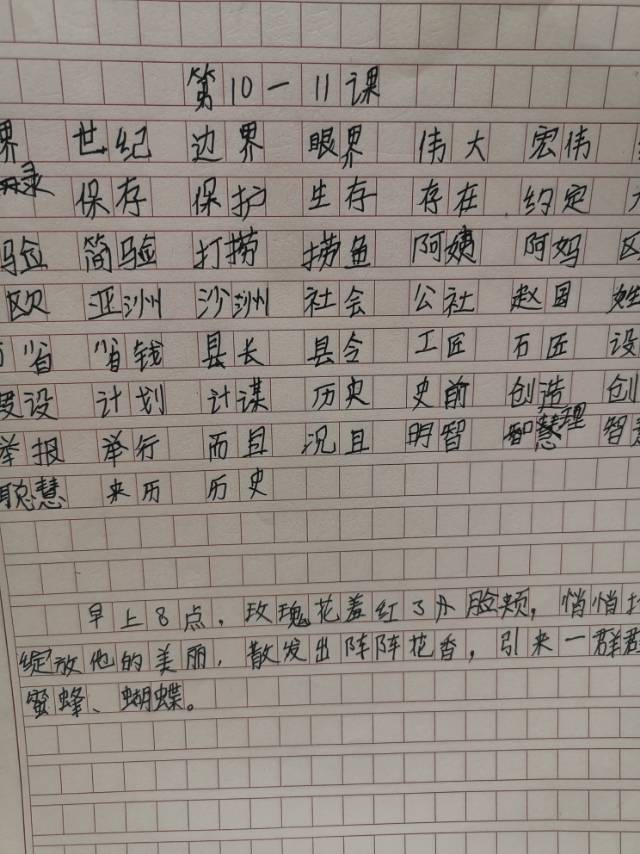 第10一11课
界 世纪 边界 眼界 伟大 宏伟
录 保存 保护 生存 存在 约定
验 简验 打捞 捞鱼 阿姨 阿妈 区
欧 亚洲 沙洲 社会 公社 赵国 姓
省 省钱 县长 县令 工匠 石匠 设
设 计划 计谋 历史 史前 创造 创
举报 举行 而且 况且 明智 智慧理 智
聪慧 来历 历史
早上8点，玫瑰花羞红了小脸颊，悄悄
绽放他的美丽，散发出阵阵花香，引来一群群
蜜蜂、蝴蝶。